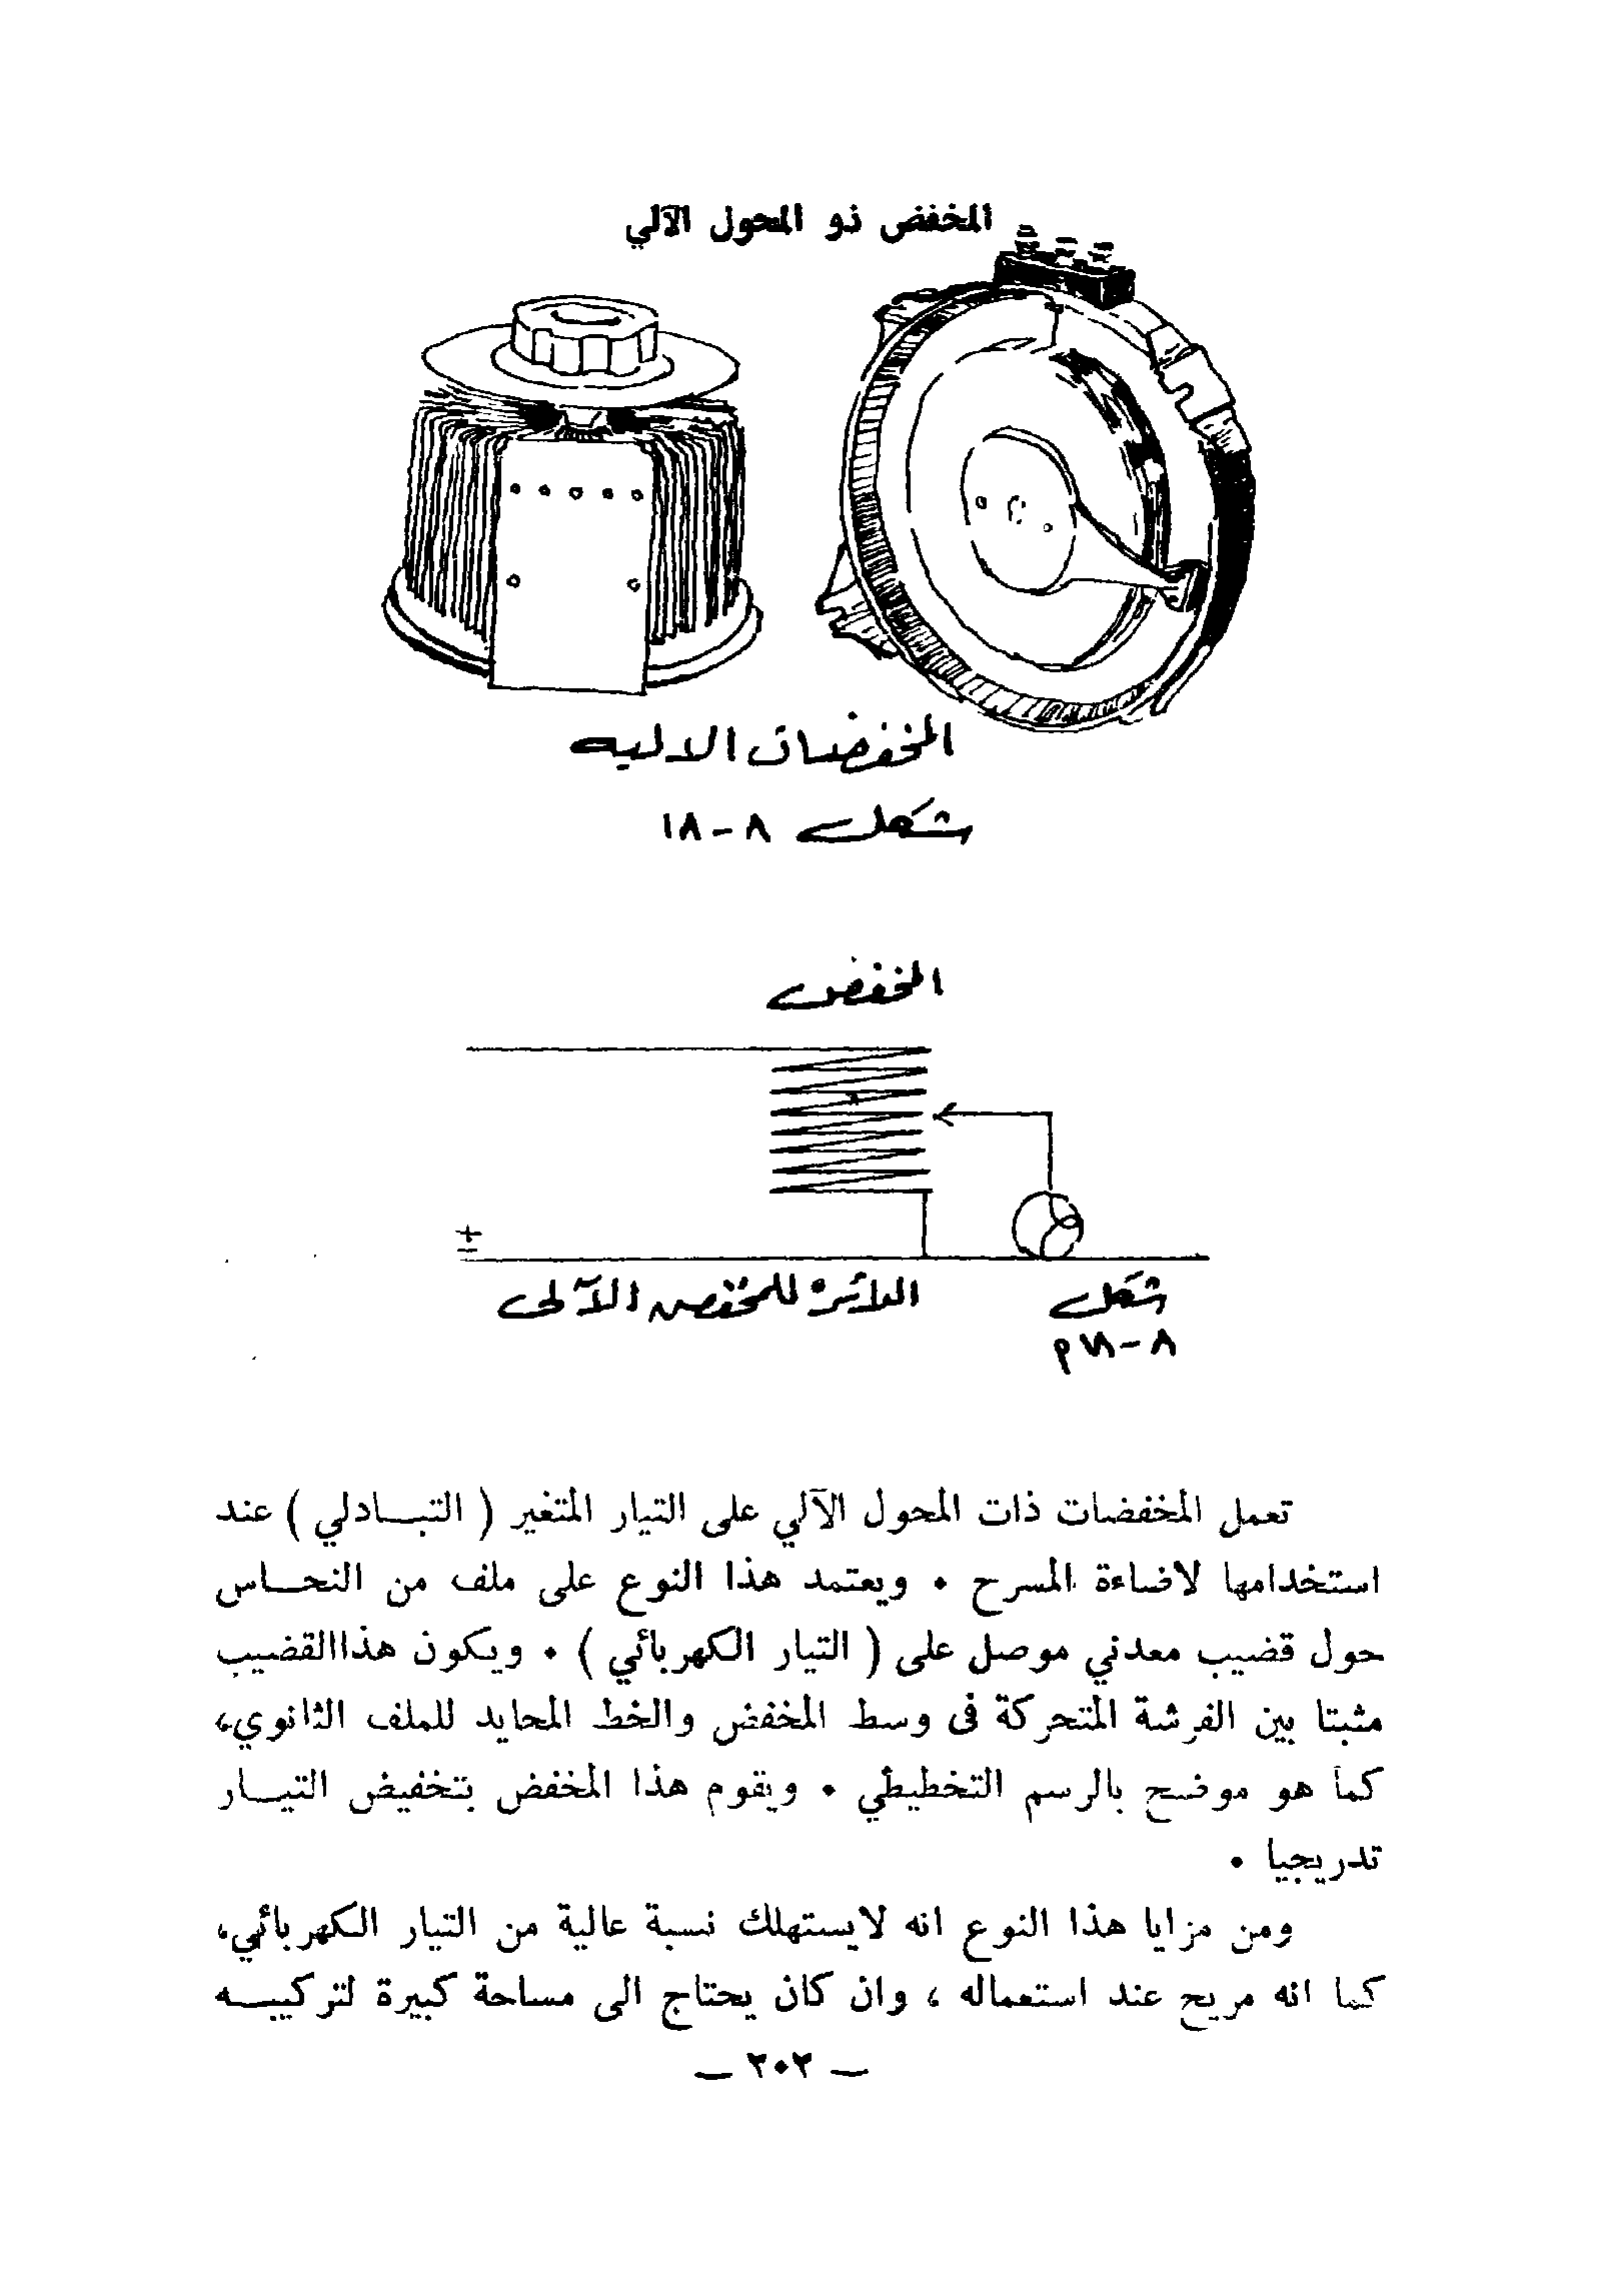 المخفض ذو المحول الآلي
المخفضات الاليه
شكل ٨-١٨
المخفض
±
الدائره للمخفض الآلى
شكل
٨-١٨م
تعمل المخفضات ذات المحول الآلي على التيار المتغير ( التبـادلي ) عند
استخدامها لاضاءة المسرح . ويعتمد هذا النوع على ملف من النحـاس
حول قضيب معدني موصل على ( التيار الكهربائي ) . ويكون هذاالقضيب
مثبتا بين الفرشة المتحركة فى وسط المخفض والخط المحايد للملف الثانوي،
كما هو موضح بالرسم التخطيطي . ويقوم هذا المخفض بتخفيض التيـار
تدريجيا .
ومن مزايا هذا النوع انه لايستهلك نسبة عالية من التيار الكهربائي،
كما انه مريح عند استعماله ، وان كان يحتاج الى مساحة كبيرة لتركيبـه
— ٢٠٢ —